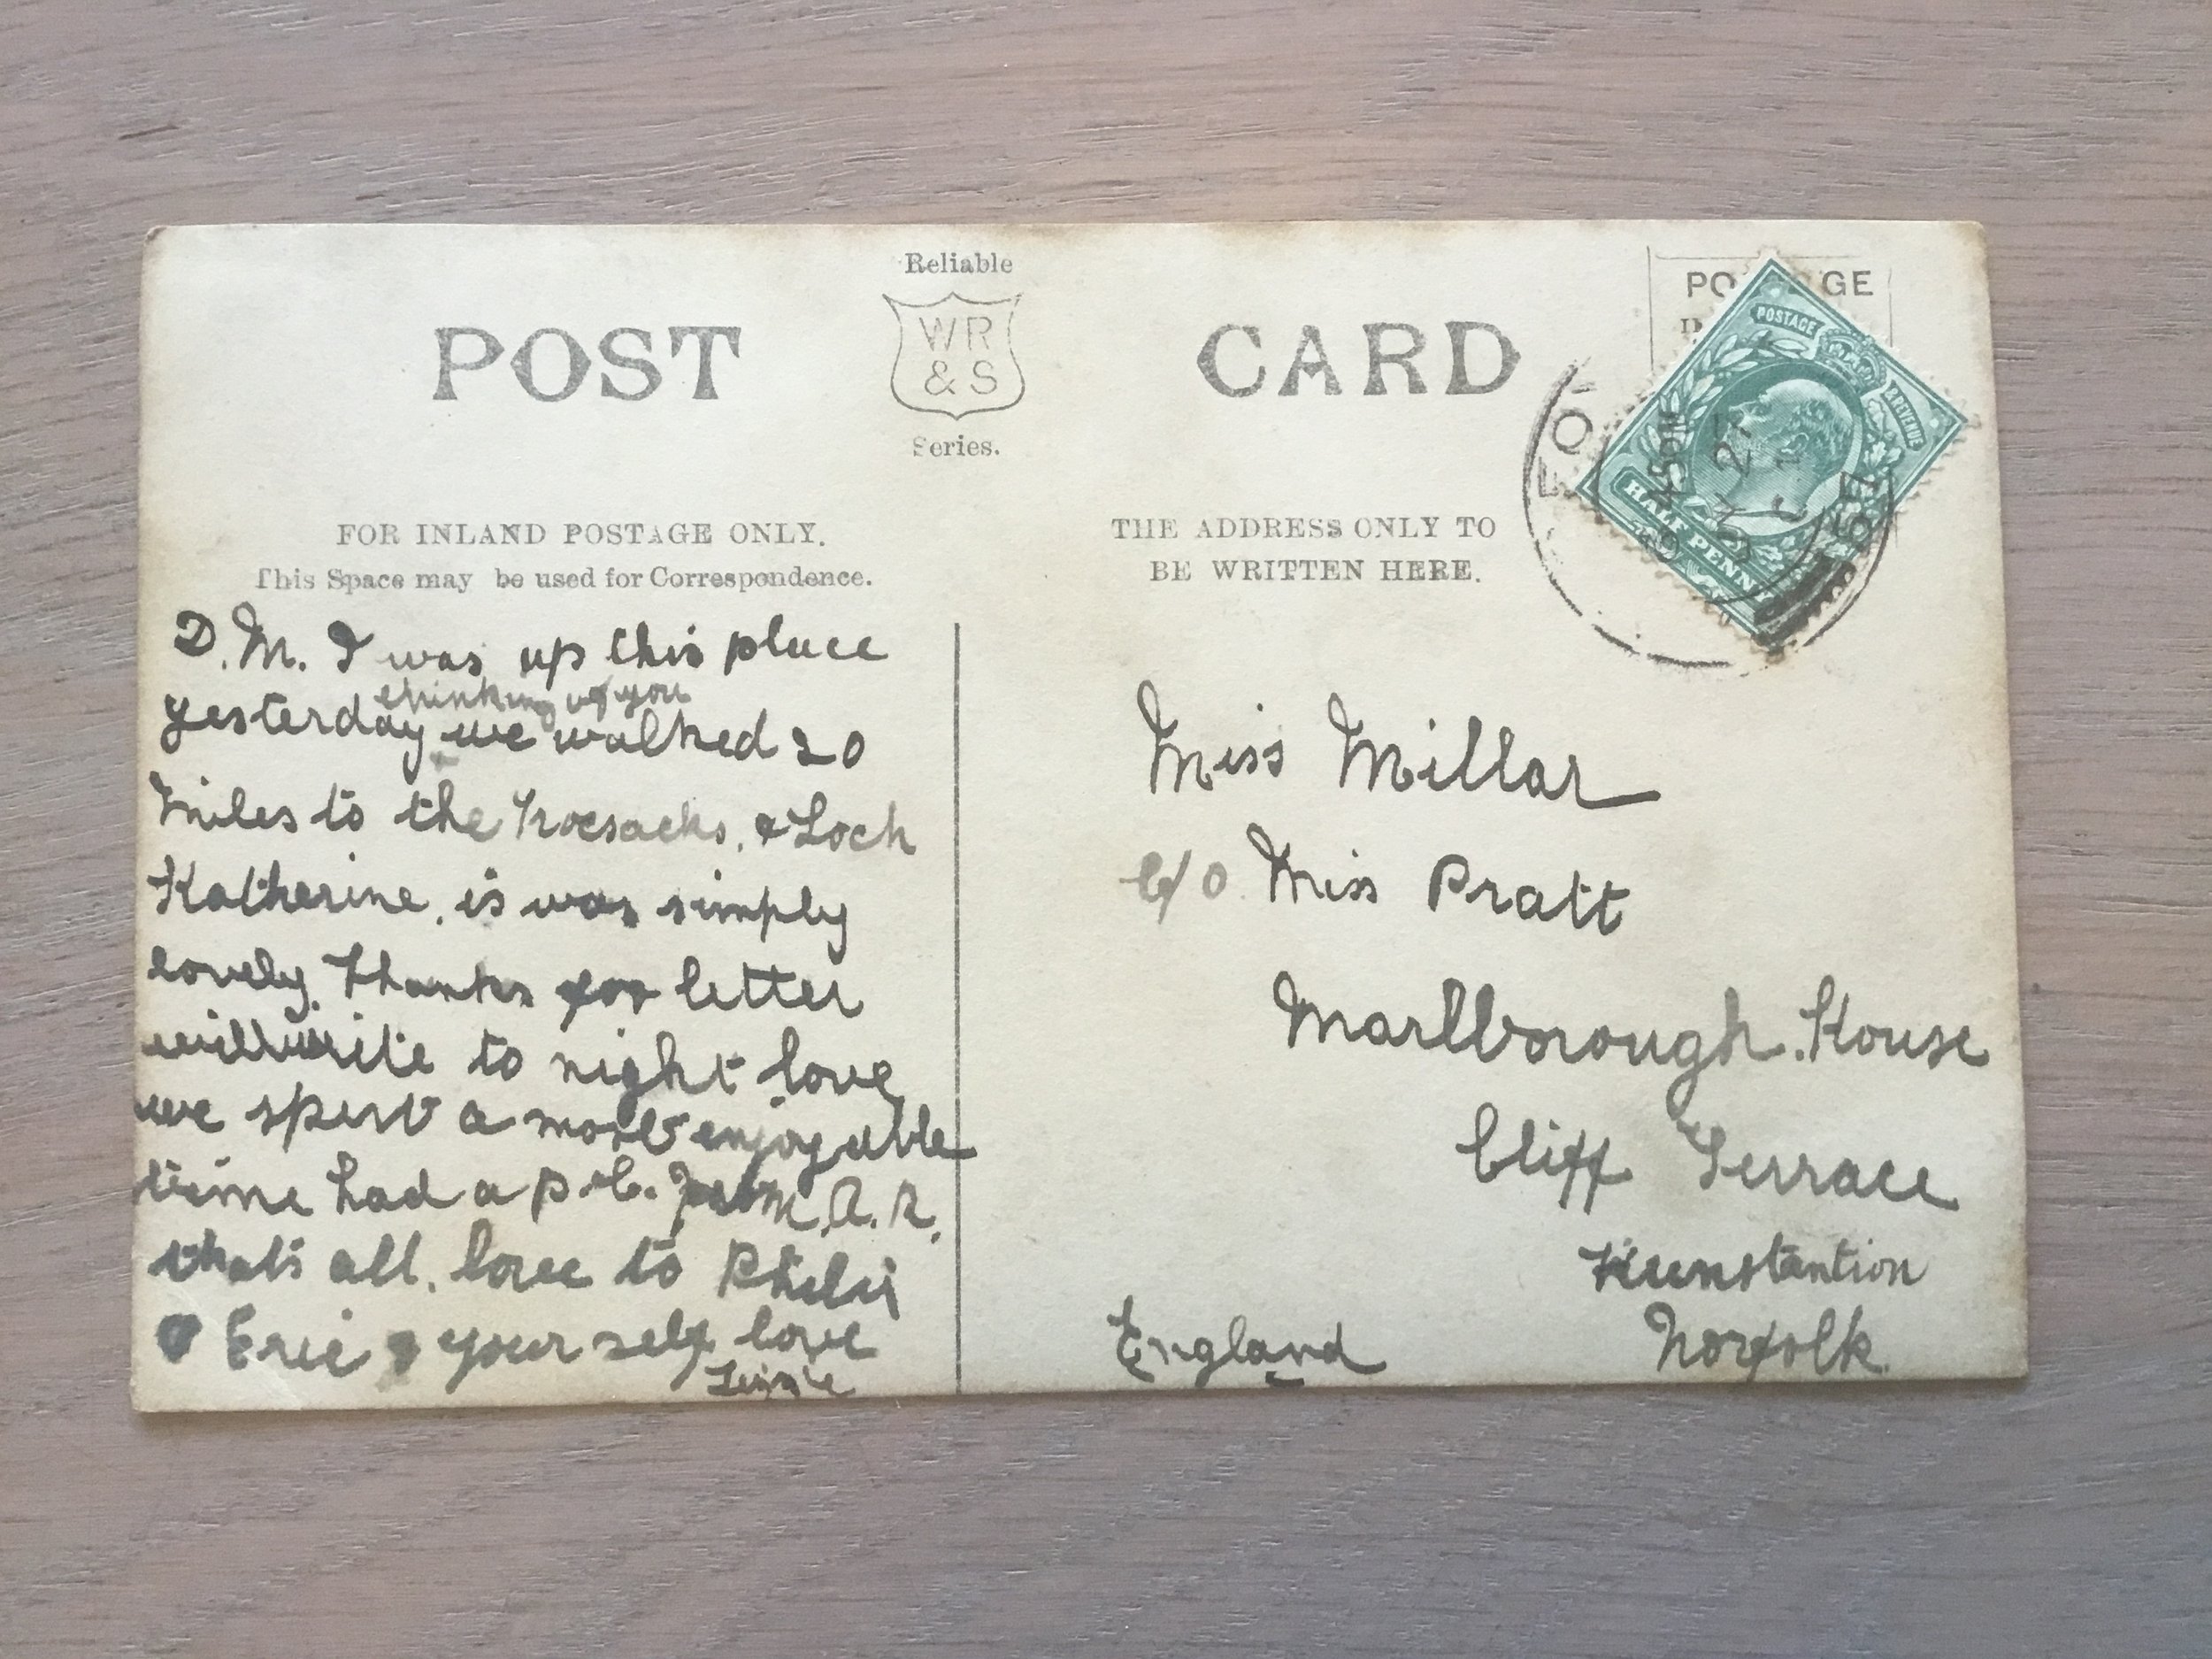 Reliable
POST
WR
& S
CARD
Series.
FOR INLAND POSTAGE ONLY.
This Space may be used for Correspondence.
THE ADDRESS ONLY TO
BE WRITTEN HERE.
PO GE
POSTAGE
& REVENUE
HALF PENNY
9 45PM
JY 27
D.M. I was up this place
thinking of you
yesterday we walked 20
miles to the Trocsacks, & Loch
Katherine, is was simply
lovely. Thanks for letter
will write to night love
we spent a most enjoyable
time had a p.c. from A. R.
that's all. love to
Eric & your self love
Miss Millar
c/o Miss Pratt
Marlborough House
Cliff Terrace
Hunstantion
Norfolk.
England